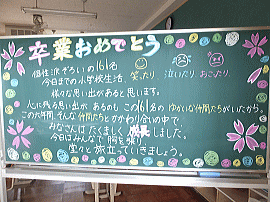 卒業おめでとう
個性派ぞろいの161名
今日までの小学校生活、笑ったり 泣いたり おこったり
様々な思い出があると思います。
人に残る思い出があるのもこの161名のゆかいな仲間たちがいたから。
この六年間、そんな仲間たちとかかわり合いの中で
みなさんはたくましく成長しました。
今日はみんなで胸を張り
堂々と旅立っていきましょう。